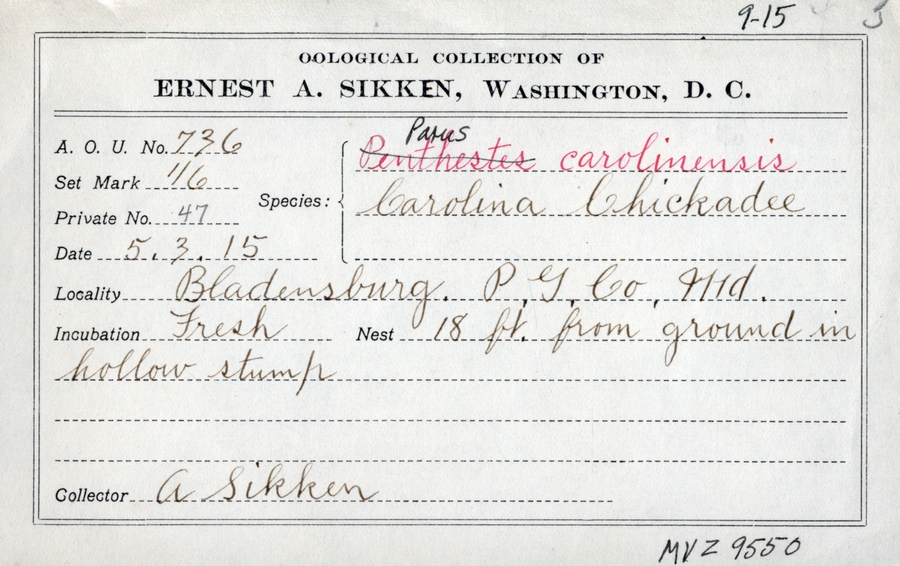 9-15 3
OOLOGICAL COLLECTION OF
ERNEST A. SIKKEN, WASHINGTON, D. C.
A. O. U. No. 736
Set Mark 1/6
Private No. 47
Date 5. 3. 15
Species:
Parus
Penthestes carolinensis
Carolina Chickadee
Locality Bladensburg. P. G. Co, Md.
Incubation Fresh Nest 18 ft. from ground in
hollow stump
Collector A Sikken
MVZ 9550